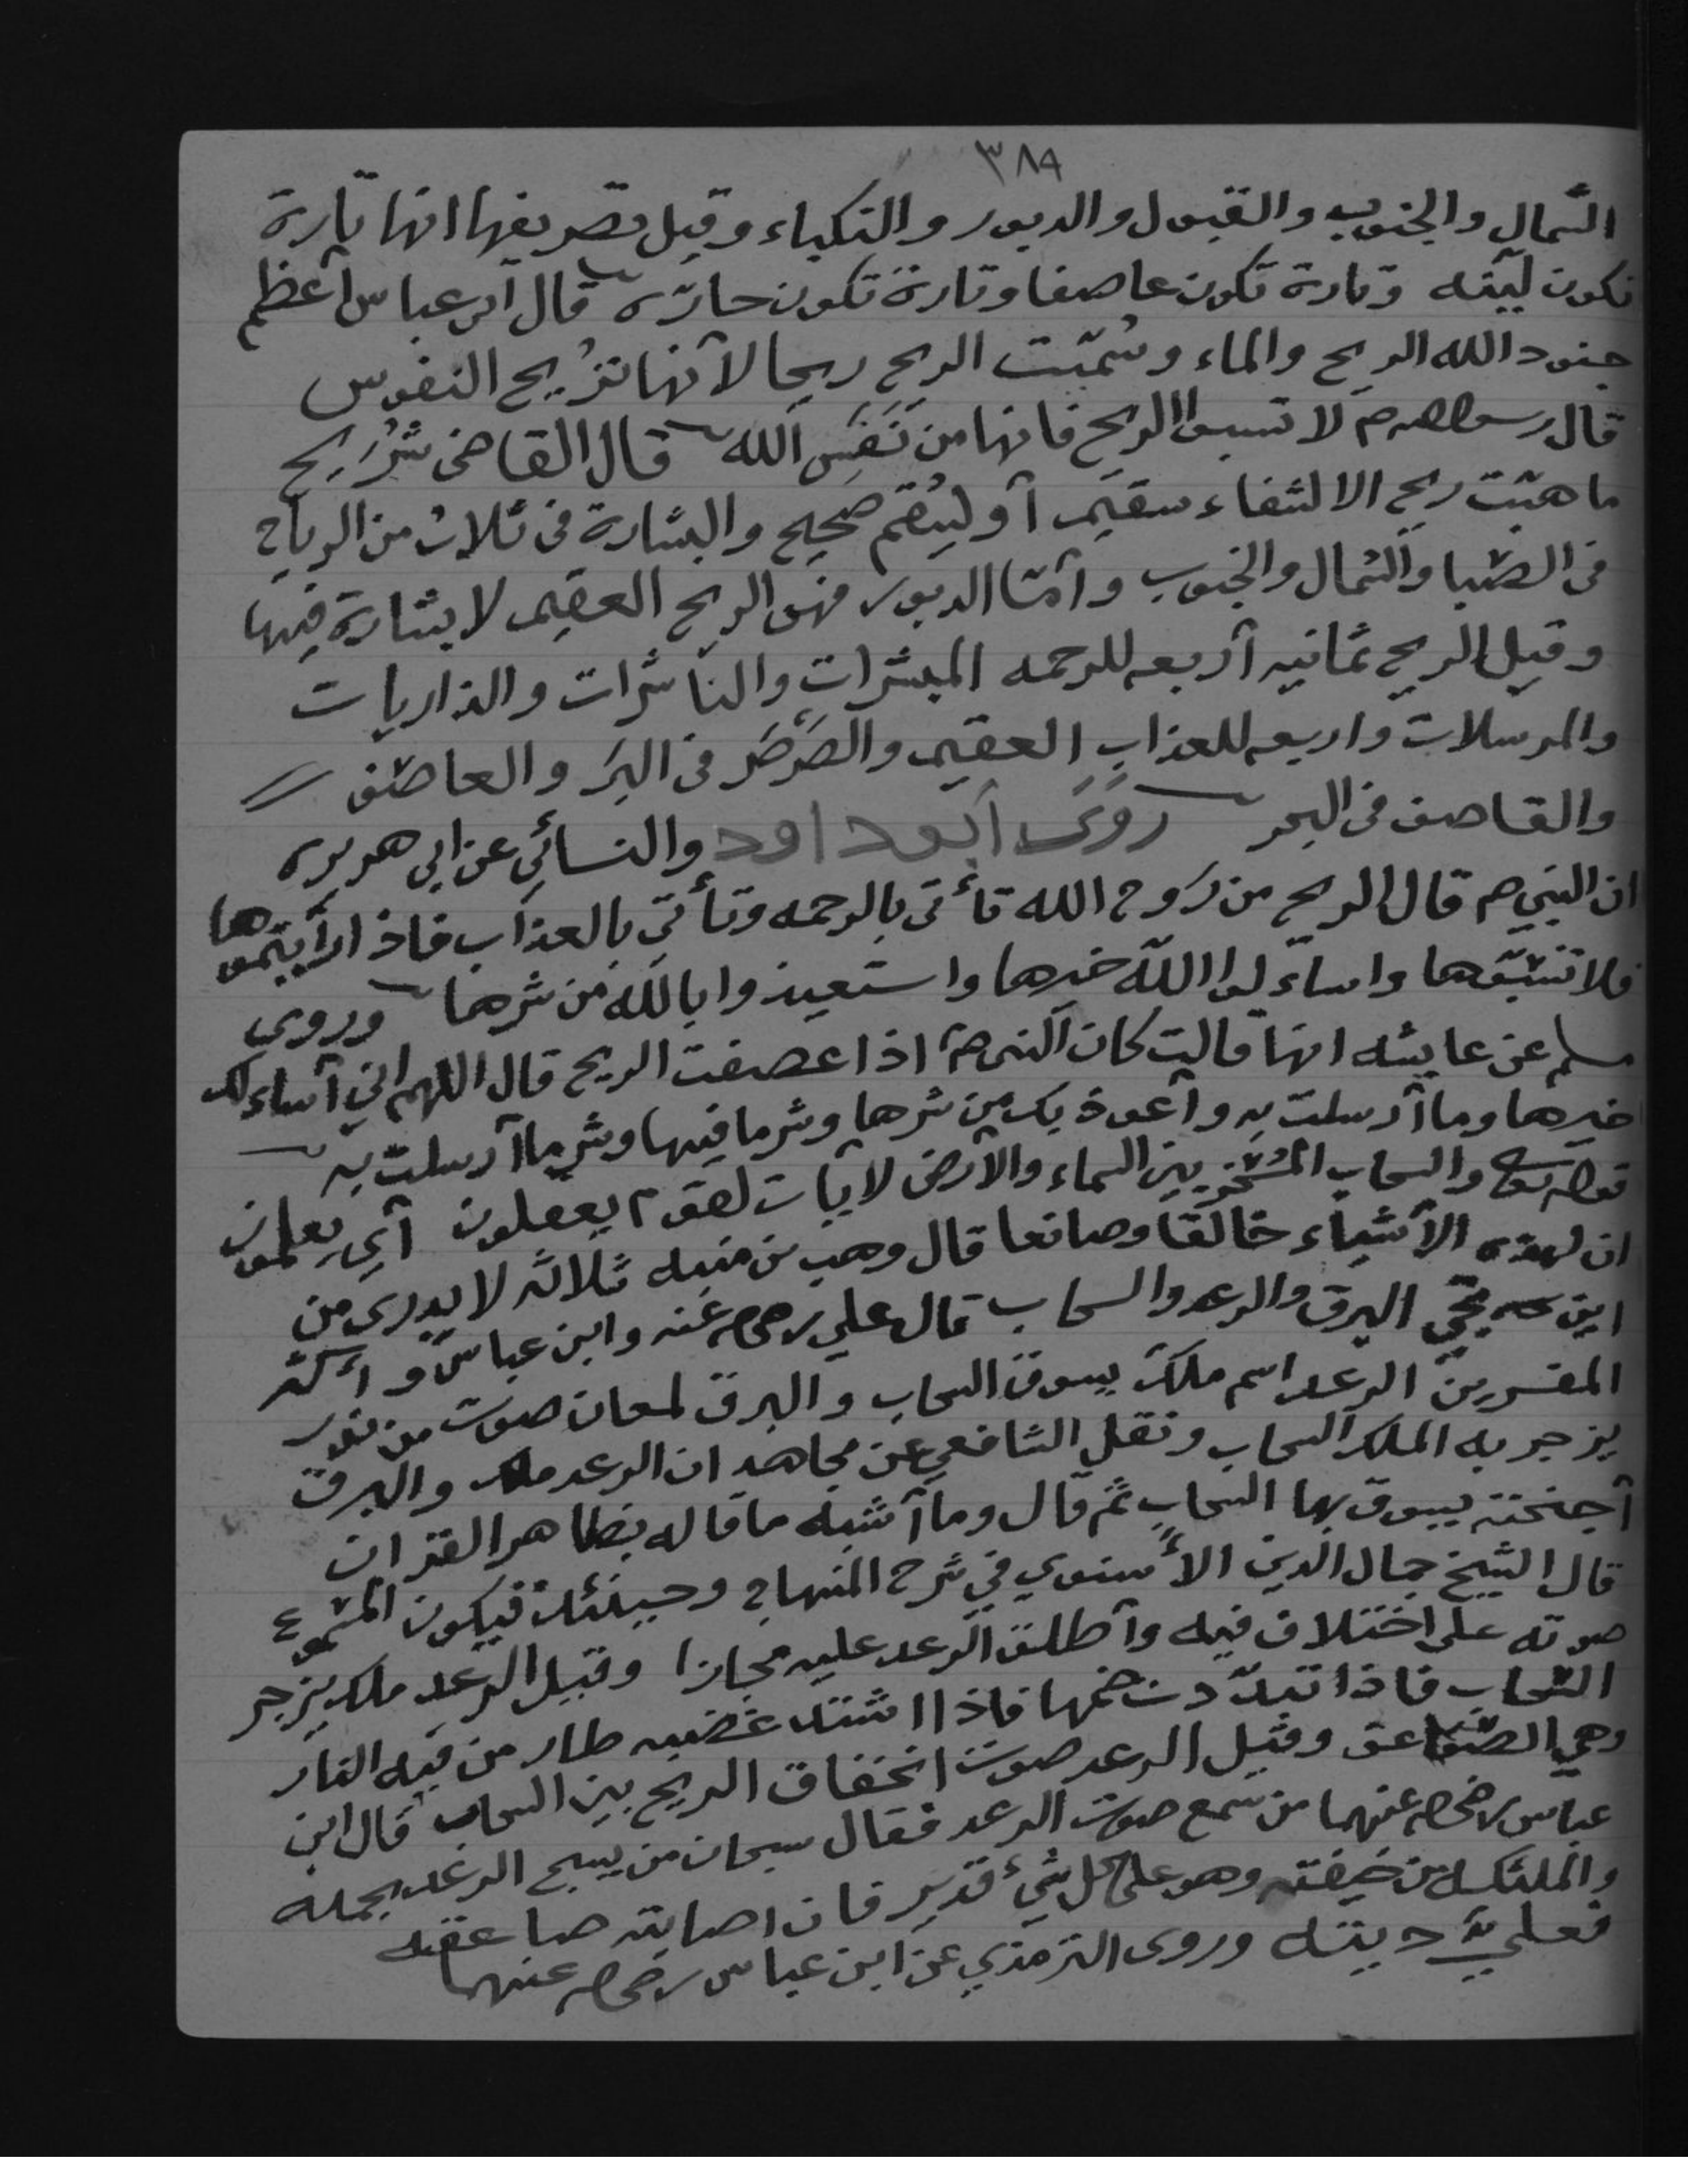 ٣٨٩
الشمال والجنوب والقبول والدبور والنكباء وقيل تصريفها انها تارة
تكون لينه وتارة تكون عاصفا وتارة تكون حارّه قال ابن عباس أعظم
جنود الله الريح والماء وسُمّيت الريح ريحا لأنها تُريح النفوس
قال رسول الله ص لا تسبوا الريح فانها من نَفَس الله قال القاضى شُرَيح
ما هبّت ريح الا لشفاء سقيم أو ليُقم صحيح والبشارة فى ثلاث من الرياح
فى الصّبا والشمال والجنوب وأمّا الدبور فهى الريح العقيم لا بشارة فيها
وقيل الريح ثمانيه أربعه للرحمه المبشّرات والناشرات والذاريات
والمرسلات واربعه للعذاب العقيم والصَرصَر فى البَر والعاصف
والقاصف فى البحر روَى أبو داود والنسائي عن ابي هريره
ان النبي ص قال الريح من رَوح الله تأتى بالرحمه وتأتي بالعذاب فاذا رأيتموها
فلا تسبّوها واسألوا الله خيرها واستعيذوا بالله من شرها وروى
مسلم عن عايشه انها قالت كان النبى ص اذا عصفت الريح قال اللهم اني أسألك
خيرها وما أرسلت به وأعوذ بك من شرها وشر ما فيها وشر ما أرسلت به
قوله تعالى والسحاب المُسَخّر بين السماء والأرض لآيات لقوم يعقلون أي يعلمون
ان لهذه الأشياء خالقا وصانعا قال وهب بن منبه ثلاثه لا يدرى من
اين تجيّ البرق والرعد والسحاب قال علي رضي الله عنه وابن عباس و أكثر
المفسرين الرعد اسم ملك يسوق السحاب والبرق لمعان صوت من نور
يزجر به الملك السحاب ونقل الشافعي عن مجاهد ان الرعد ملك والبرق
أجنحته يسوق بها السحاب ثم قال وما أشبه ما قاله بظاهر القران
قال الشيخ جمال الدين الأسنوي في شرح المنهاج وحينئذ فيكون المسموع
صوته على اختلاف فيه وأطلق الرعد عليه مجازا وقيل الرعد ملك يزجر
السّحاب فاذا تبدّدت ضمها فاذا اشتد غضبه طار من فيه النار
وهي الصّواعق وقيل الرعد صوت انخفاق الريح بين السحاب قال ابن
عباس رضي الله عنهما من سمع صوت الرعد فقال سبحان من يسبح الرعد بحمده
والملئكه من خيفته وهو على كل شيء قدير فان اصابته صاعقه
فعليّ ديته وروى الترمذي عن ابن عباس رضي الله عنهما